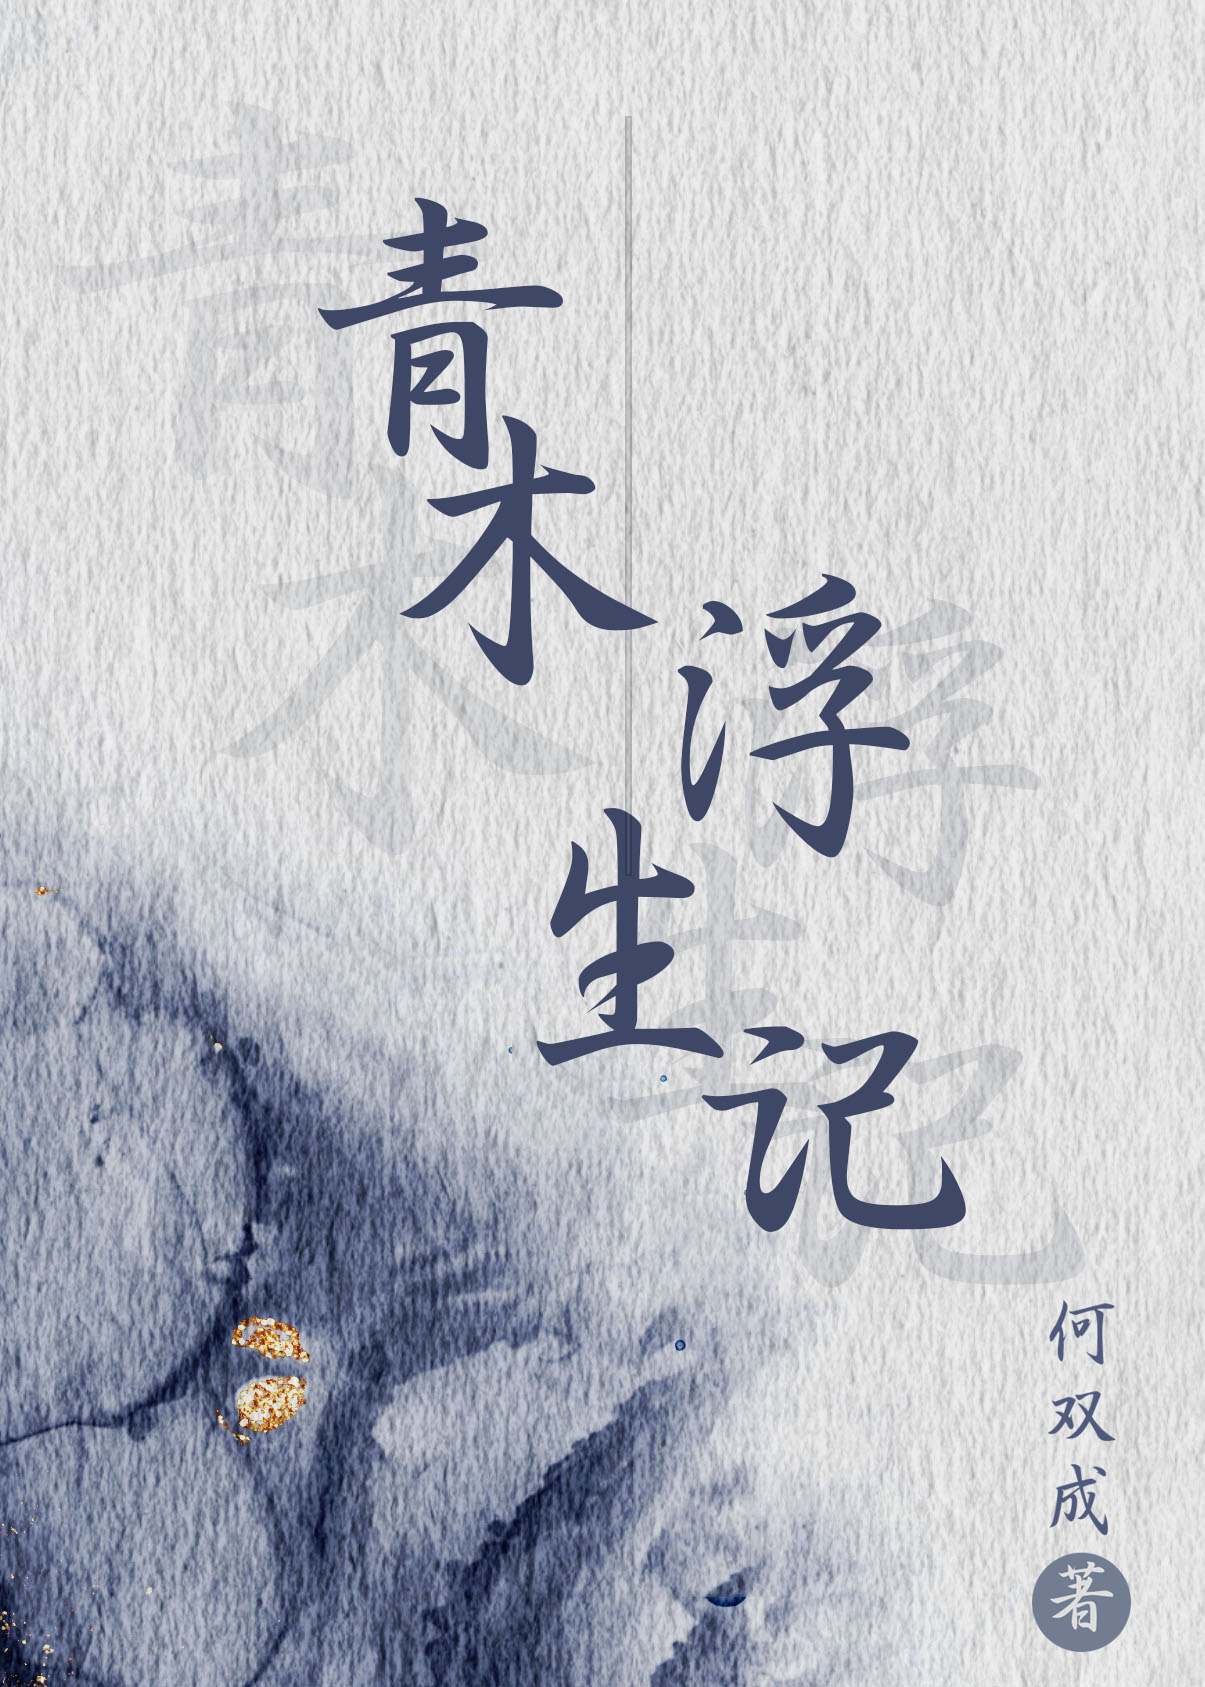 青木
浮生记
何双成
著